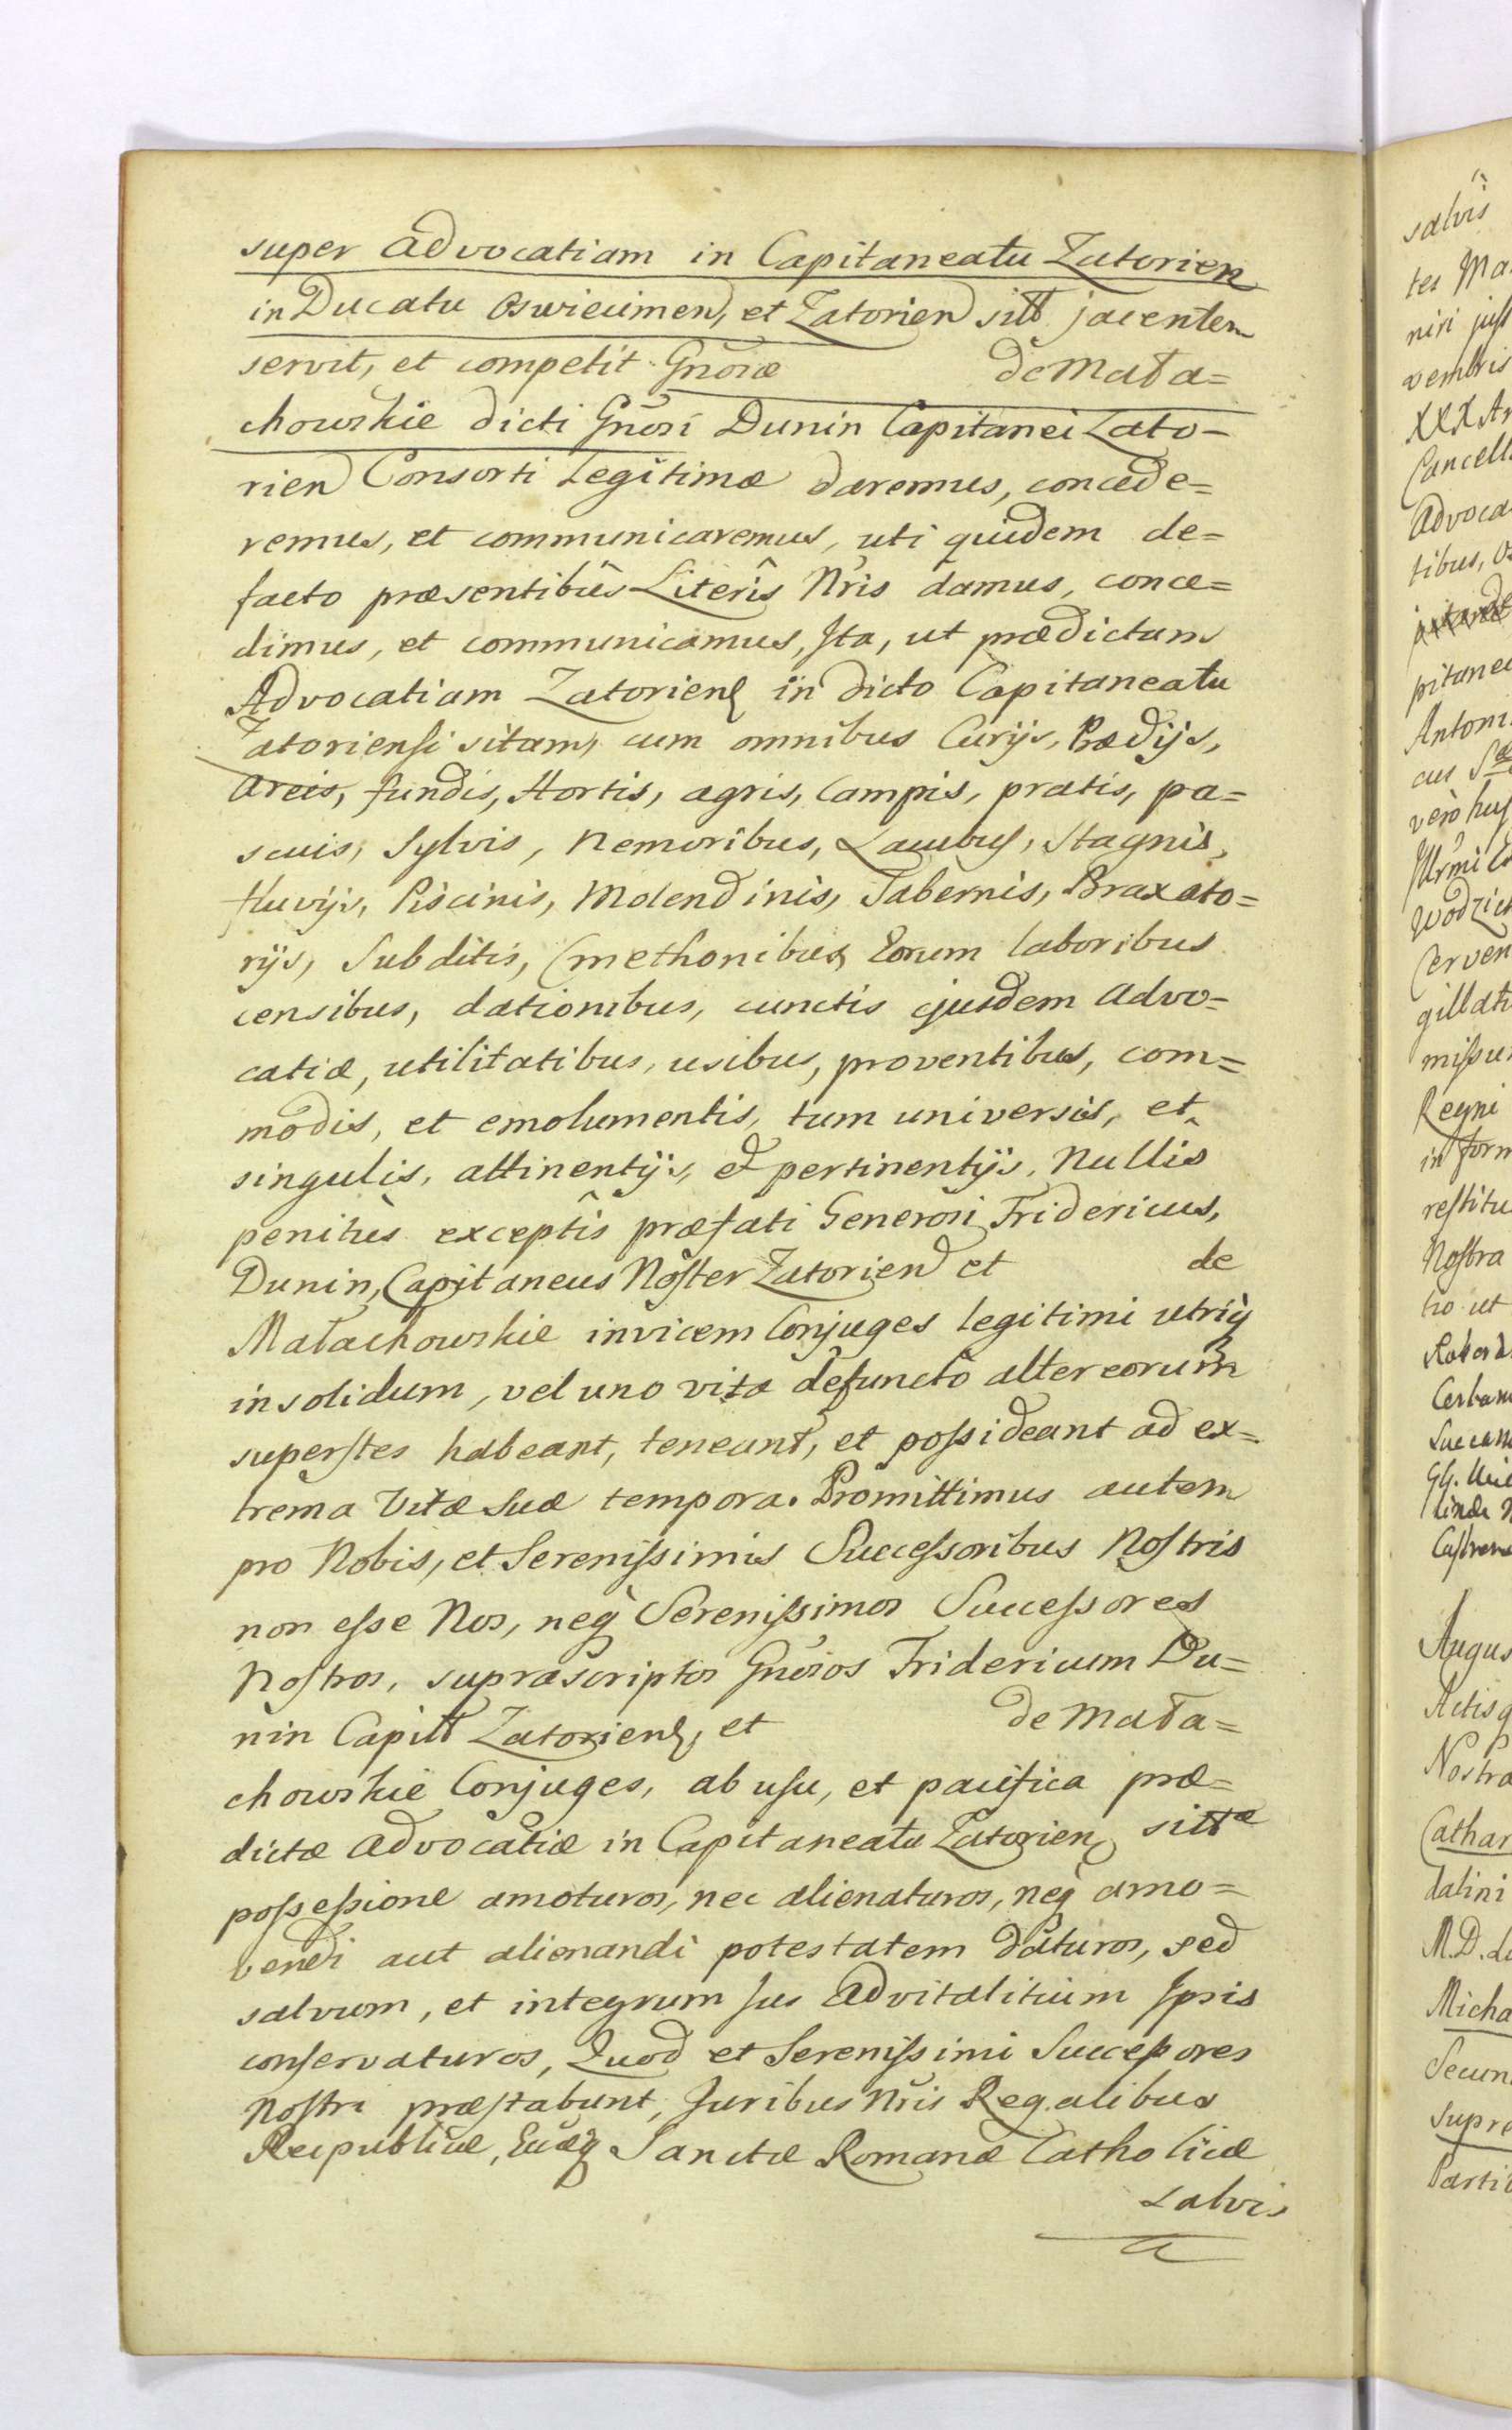 super Advocatiam in Capitaneatu Zatorien
in Ducatu Oswiecimen, et Zatorien sitt jacentem
servit, et competit Gnosæ de Mała=
chowskie dicti Gnosi Dunin Capitanei Zato-
rien Consorti Legitimæ daremus, concede=
remus, et communicaremus, uti quidem de=
facto præsentibûs Literîs Nris damus, conce=
dimus, et communicamus, Ita, ut prædictam
Advocatiam Zatorien in dicto Capitaneatu
Zatoriensi sitam, cum omnibus Curijs, Prædijs,
Areis, fundis, Hortis, agris, Campis, pratis, pa=
scuis, Sylvis, Nemoribus, Lacubus, Stagnis,
fluvijs, Piscinis, Molendinis, Tabernis, Braxato=
rijs, Subditis, Cmethonibus, Eorum laboribus
censibus, dationibus, cunctis ejusdem Advo=
catiæ, utilitatibus, usibus, proventibus, com=
modis, et emolumentis, tum universis, et
singulis, attinentijs, et pertinentijs, Nullis
penitùs exceptîs præfati Generosi Fridericus,
Dunin, Capitaneus Noster Zatorien et de
Małachowskie invicem Conjuges legitimi utriq
in solidum, vel uno vita defuncto alter eorum
superstes habeant, teneant, et possideant ad ex=
trema Vitæ Suæ tempora. Promittimus autem
pro Nobis, et Serenissimis Successoribus Nostris
non esse Nos, neq Serenissimos Successores
Nostros, suprascriptos Gnosos Fridericum Du=
nin Capitt Zatorien, et de Mała=
chowskie Conjuges, ab usu, et pacifica præ=
dictæ Advocatiæ in Capitaneatu Zatorien sittæ
possessione amoturos, nec alienaturos, neq amo=
vendi aut alienandi potestatem daturos, sed
salvum, et integrum Jus Advitalitium Ipsis
conservaturos, Quod et Serenissimi Successores
Nostri præstabunt, Juribus Nris Regalibus
Reipublicæ, Ecclæq Sanctæ Romanæ Catholicæ
salvis
salvis
tes Ma
niri juss
vembris
XXX An
Cancell
Advoca
tibus, O
pitanea
Antoni
cus
verò huj
Wodzic
Cerven
gillat
missu
Regni
in form
restitu
Nostra
tro ut
Augus
Actis q
Nostra
Cathar
dalini
M.D. L
Micha
Secun
Supre
Parti